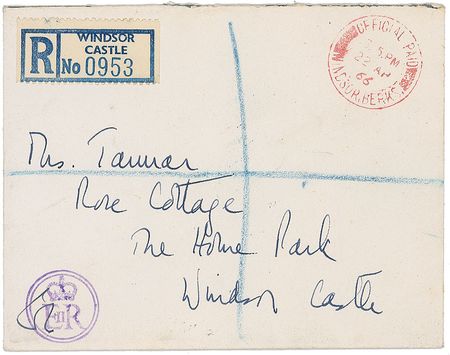 WINDSOR
CASTLE
R No 0953
OFFICIAL PAID
PM
22 AP
66
WINDSOR. BERKS.
Mrs. Tannar
Rose Cottage
The Home Park
Windsor Castle
EIIR